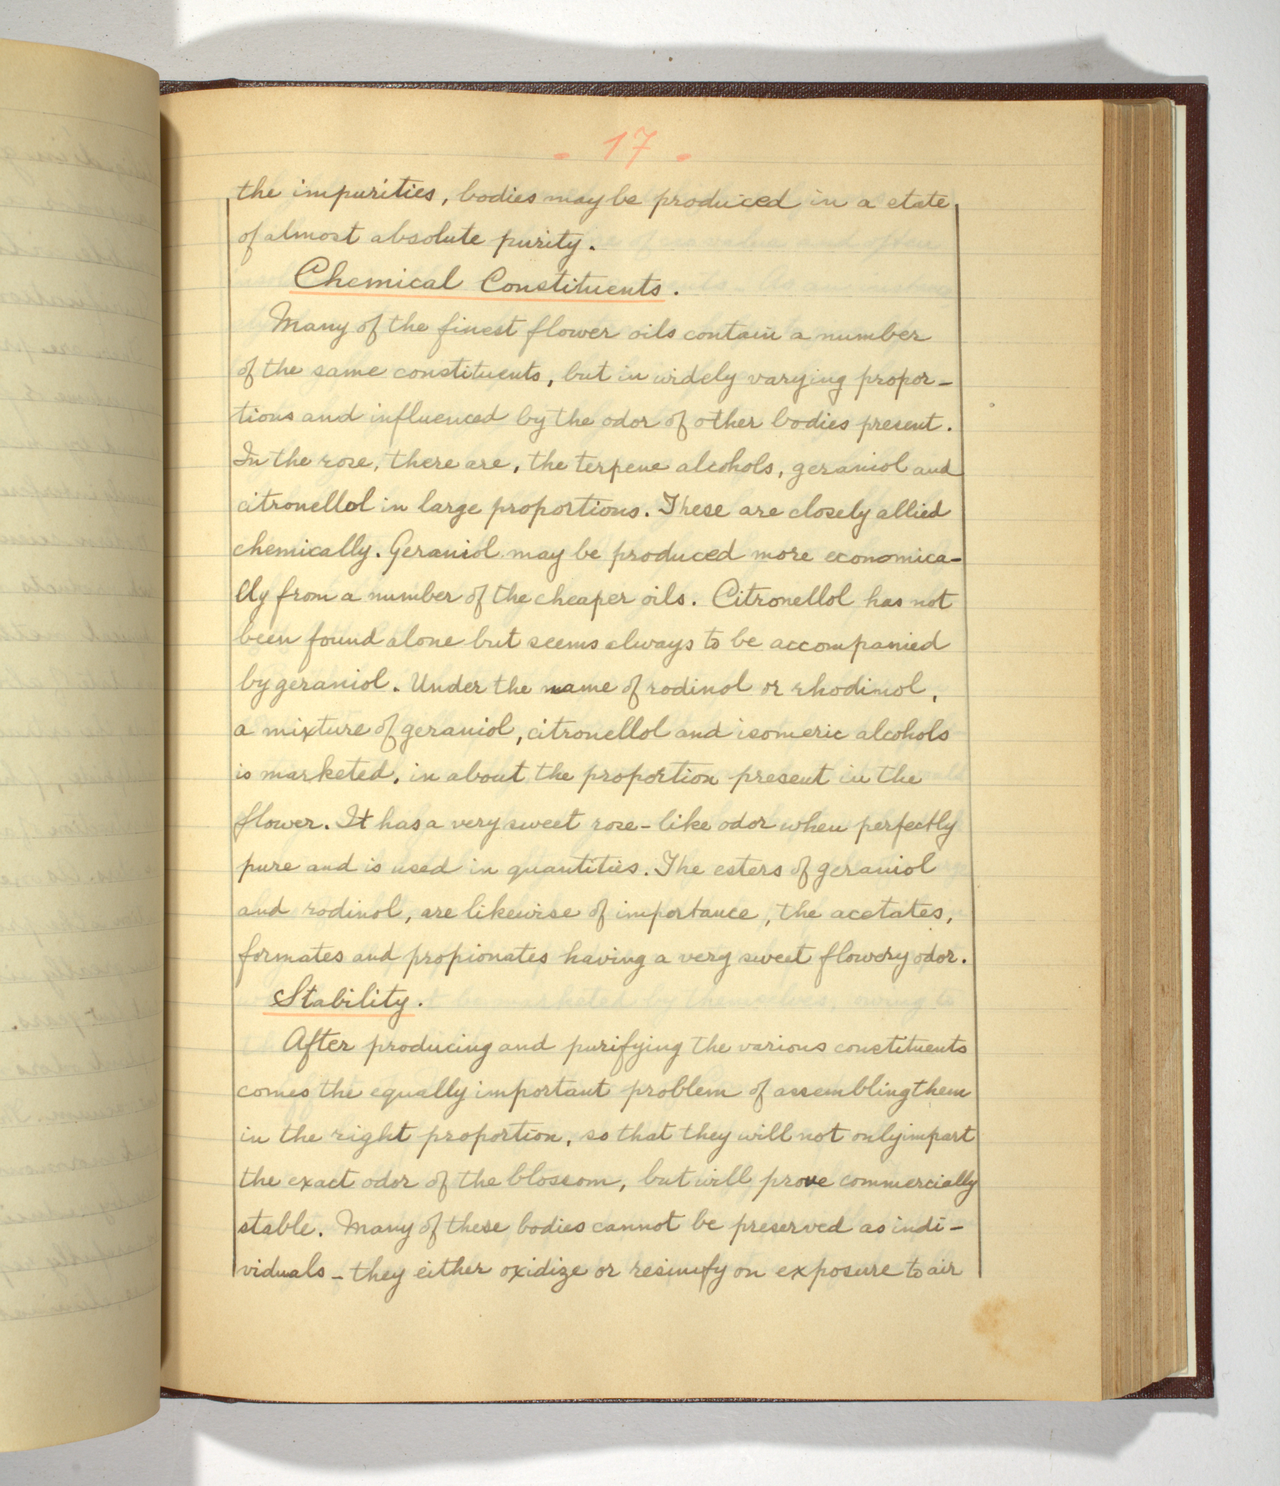 - 17 -
the impurities, bodies may be produced in a state
of almost absolute purity.
Chemical Constituents.
Many of the finest flower oils contain a number
of the same constituents, but in widely varying propor-
tions and influenced by the odor of other bodies present.
In the rose, there are, the terpene alcohols, geraniol and
citronellol in large proportions. These are closely allied
chemically. Geraniol may be produced more economica-
lly from a number of the cheaper oils. Citronellol has not
been found alone but seems always to be accompanied
by geraniol. Under the name of rodinol or rhodinol,
a mixture of geraniol, citronellol and isomeric alcohols
is marketed, in about the proportion present in the
flower. It has a very sweet rose-like odor when perfectly
pure and is used in quantities. The esters of geraniol
and rodinol, are likewise of importance, the acetates,
formates and propionates having a very sweet flowery odor.
Stability.
After producing and purifying the various constituents
comes the equally important problem of assembling them
in the right proportion, so that they will not only impart
the exact odor of the blossom, but will prove commercially
stable. Many of these bodies cannot be preserved as indi-
viduals - they either oxidize or resinify on exposure to air